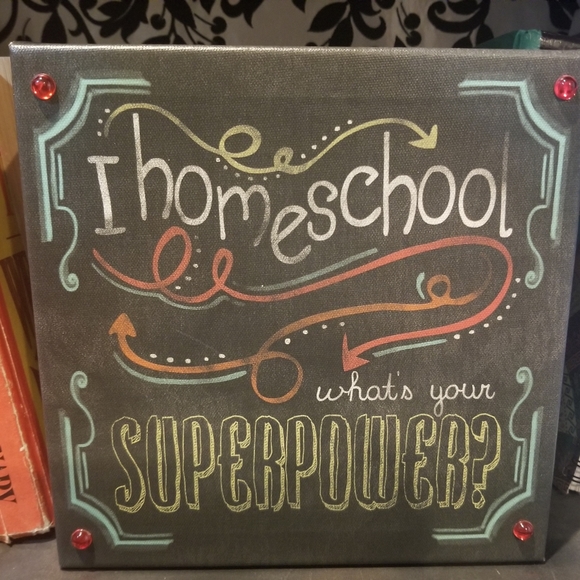 I homeschool
what's your
SUPERPOWER?